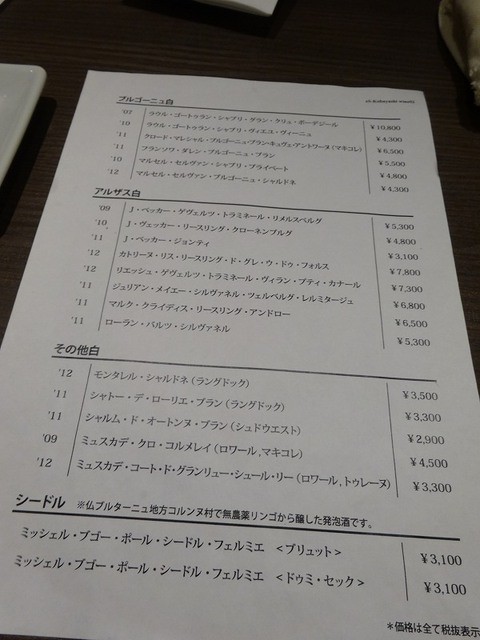 ブルゴーニュ白
'07 ラウル・ゴートゥラン・シャブリ・グラン・クリュ・ボーデジール ¥10,800
'10 ラウル・ゴートゥラン・シャブリ・ヴィエユ・ヴィーニュ ¥4,300
'11 クロード・マレシャル・ブルゴーニュ・ブランキュヴェ・アントワーヌ(マキコレ) ¥6,500
'11 フランソワ・ダレン・ブルゴーニュ・ブラン ¥5,500
'10 マルセル・セルヴァン・シャブリ・プライベート ¥4,800
'12 マルセル・セルヴァン・ブルゴーニュ・シャルドネ ¥4,300
アルザス白
'09 J・ベッカー・ゲヴェルツ・トラミネール・リメルスベルグ ¥5,300
'10 J・ヴェッカー・リースリング・クローネンブルグ ¥4,800
'11 J・ベッカー・ジョンティ ¥3,100
'12 カトリーヌ・リス・リースリング・ド・グレ・ウ・ドゥ・フォルス ¥7,800
'12 リエッシュ・ゲヴェルツ・トラミネール・ヴィラン・プティ・カナール ¥7,300
'11 ジュリアン・メイエー・シルヴァネル・ツェルベルグ・レルミタージュ ¥6,800
'11 マルク・クライディス・リースリング・アンドロー ¥6,500
'11 ローラン・バルツ・シルヴァネル ¥5,300
その他白
'12 モンタレル・シャルドネ(ラングドック) ¥3,500
'11 シャトー・デ・ローリエ・ブラン(ラングドック) ¥3,300
'11 シャルム・ド・オートンヌ・ブラン(シュドウエスト) ¥2,900
'09 ミュスカデ・クロ・コルメレイ(ロワール,マキコレ) ¥4,500
'12 ミュスカデ・コート・ド・グランリュー・シュール・リー(ロワール,トゥレーヌ) ¥3,300
シードル ※仏ブルターニュ地方コルンヌ村で無農薬リンゴから醸した発泡酒です。
ミッシェル・ブゴー・ポール・シードル・フェルミエ <ブリュット> ¥3,100
ミッシェル・ブゴー・ポール・シードル・フェルミエ <ドゥミ・セック> ¥3,100
*価格は全て税抜表示